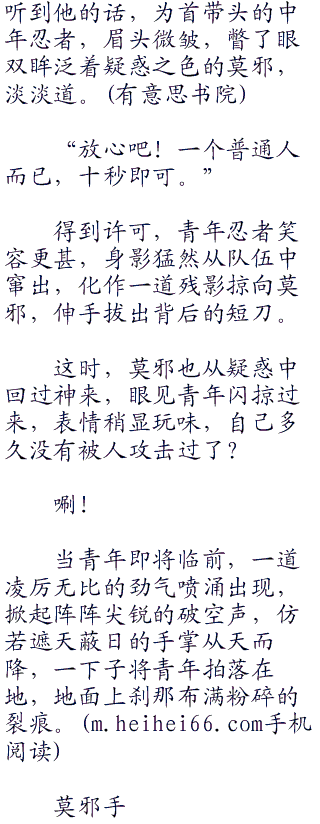 听到他的话，为首带头的中
年忍者，眉头微皱，瞥了眼
双眸泛着疑惑之色的莫邪，
淡淡道。(有意思书院)
“放心吧！一个普通人
而已，十秒即可。”
得到许可，青年忍者笑
容更甚，身影猛然从队伍中
窜出，化作一道残影掠向莫
邪，伸手拔出背后的短刀。
这时，莫邪也从疑惑中
回过神来，眼见青年闪掠过
来，表情稍显玩味，自己多
久没有被人攻击过了？
唰！
当青年即将临前，一道
凌厉无比的劲气喷涌出现，
掀起阵阵尖锐的破空声，仿
若遮天蔽日的手掌从天而
降，一下子将青年拍落在
地，地面上刹那布满粉碎的
裂痕。(m.heihei66.com手机
阅读)
莫邪手